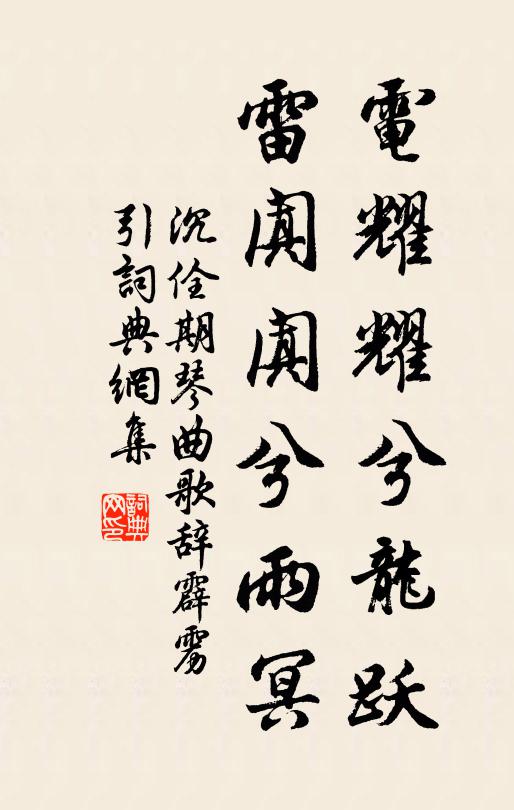 電耀耀兮龍跃
雷闐闐兮雨冥
沉佺期琴曲歌辞霹雳
引詞典網集
詞典
网印